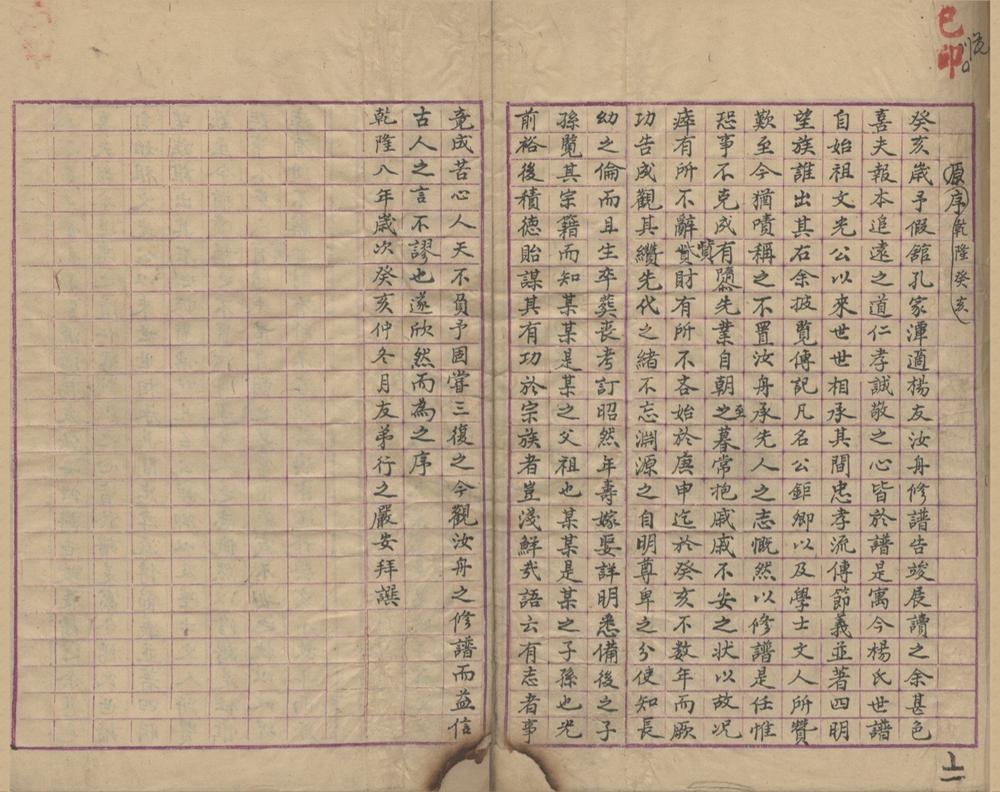 已印
原序 乾隆癸亥
癸亥歲予假館孔家潭適楊友汝舟修譜告竣展讀之余甚色
喜夫報本追遠之道仁孝誠敬之心皆於譜是寓今楊氏世譜
自始祖文光公以來世世相承其間忠孝流傳節義並著四明
望族誰出其右余披覽傳記凡名公鉅卿以及學士文人所贊
歎至今猶嘖稱之不置汝舟承先人之志慨然以修譜是任惟
恐事不克成有隳先業自朝至之暮常抱戚戚不安之狀以故况
瘁有所不辭貲財有所不吝始於庚申迄於癸亥不数年而厥
功告成觀其纘先代之緒不忘淵源之自明尊卑之分使知長
幼之倫而且生卒葬喪考訂昭然年壽嫁娶詳明悉備後之子
孫覽其宗籍而知某某是某之父祖也某某是某之子孫也光
前裕後積德貽謀其有功於宗族者豈淺鮮哉語云有志者事
竟成苦心人天不負予固嘗三復之今觀汝舟之修譜而益信
古人之言不謬也遂欣然而為之序
乾隆八年歲次癸亥仲冬月友弟行之嚴安拜譔